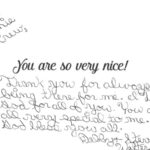 crews
You are so very nice!
Thank you for always
being there for me. I thank
God for all of you. You are
all very special to me.
God bless you all.